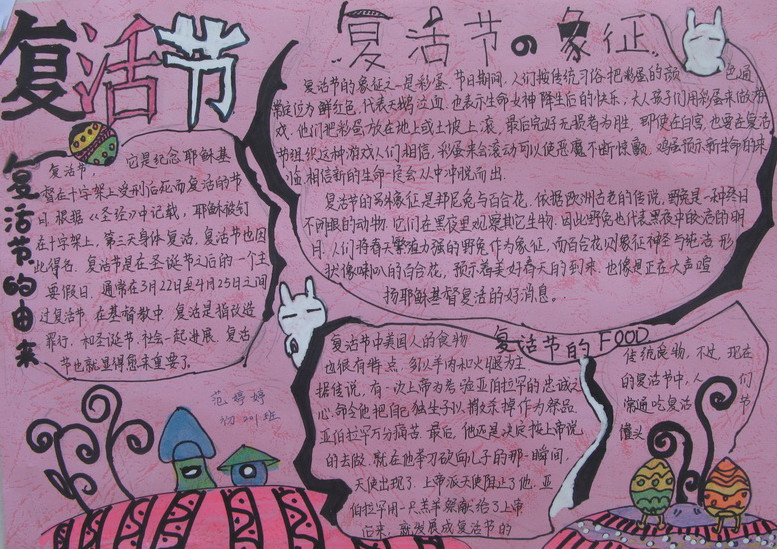 复活节
复活节的由来
复活节 它是纪念耶稣基
督在十字架上受刑后死而复活的节
日。根据《圣经》中记载，耶稣被钉
在十字架上，第三天身体复活，复活节也因
此得名。复活节是在圣诞节之后的一个主
要假日，通常在3月22日至4月25日之间
过复活节。在基督教中，复活是指改造
罪行。和圣诞节，社会一起进展，复活
节也就显得愈来重要了。
“复活节の象征”
复活节的象征之一是彩蛋。节日期间，人们按传统习俗把彩蛋的颜 色通
常定位为鲜红色，代表天鹅泣血，也表示生命女神降生后的快乐；大人孩子们用彩蛋来做游
戏，他们把彩蛋放在地上或土坡上滚，最后完好无损者为胜，即使在白宫，也要在复活
节组织这种游戏人们相信，彩蛋来会滚动可以使恶魔不断惊颤，鸡蛋预示新生命的来
临，相信新的生命一定会从中冲脱而出。
复活节的另外象征是邦尼兔与百合花，依据欧洲古老的传说，野兔是一种终日
不闭眼的动物，它们在黑夜里观察其它生物，因此野兔也代表黑夜中的皓皓明
月，人们将春天繁殖力强的野兔作为象征，而百合花则象征神圣与纯洁，形
状像喇叭的百合花，预示着美好春天的到来，也像是正在大声喧
扬耶稣基督复活的好消息。
复活节的FOOD
复活节中美国人的食物
也很有特点，多以羊肉和火腿为主，
据传说，有一次上帝为考验亚伯拉罕的忠诚之
心，命令他把自己独生子以撒杀掉作为祭品，
亚伯拉罕万分痛苦，最后，他还是决定按上帝说
的去做，就在他举刀砍向儿子的那一瞬间，
天使出现了，上帝派天使阻止了他，亚
伯拉罕用一只羔羊祭献给了上帝
后来，就发展成复活节的
传统食物，不过，现在
的复活节中，人 们
常通吃复活 节
罐头
范婷婷
初201班